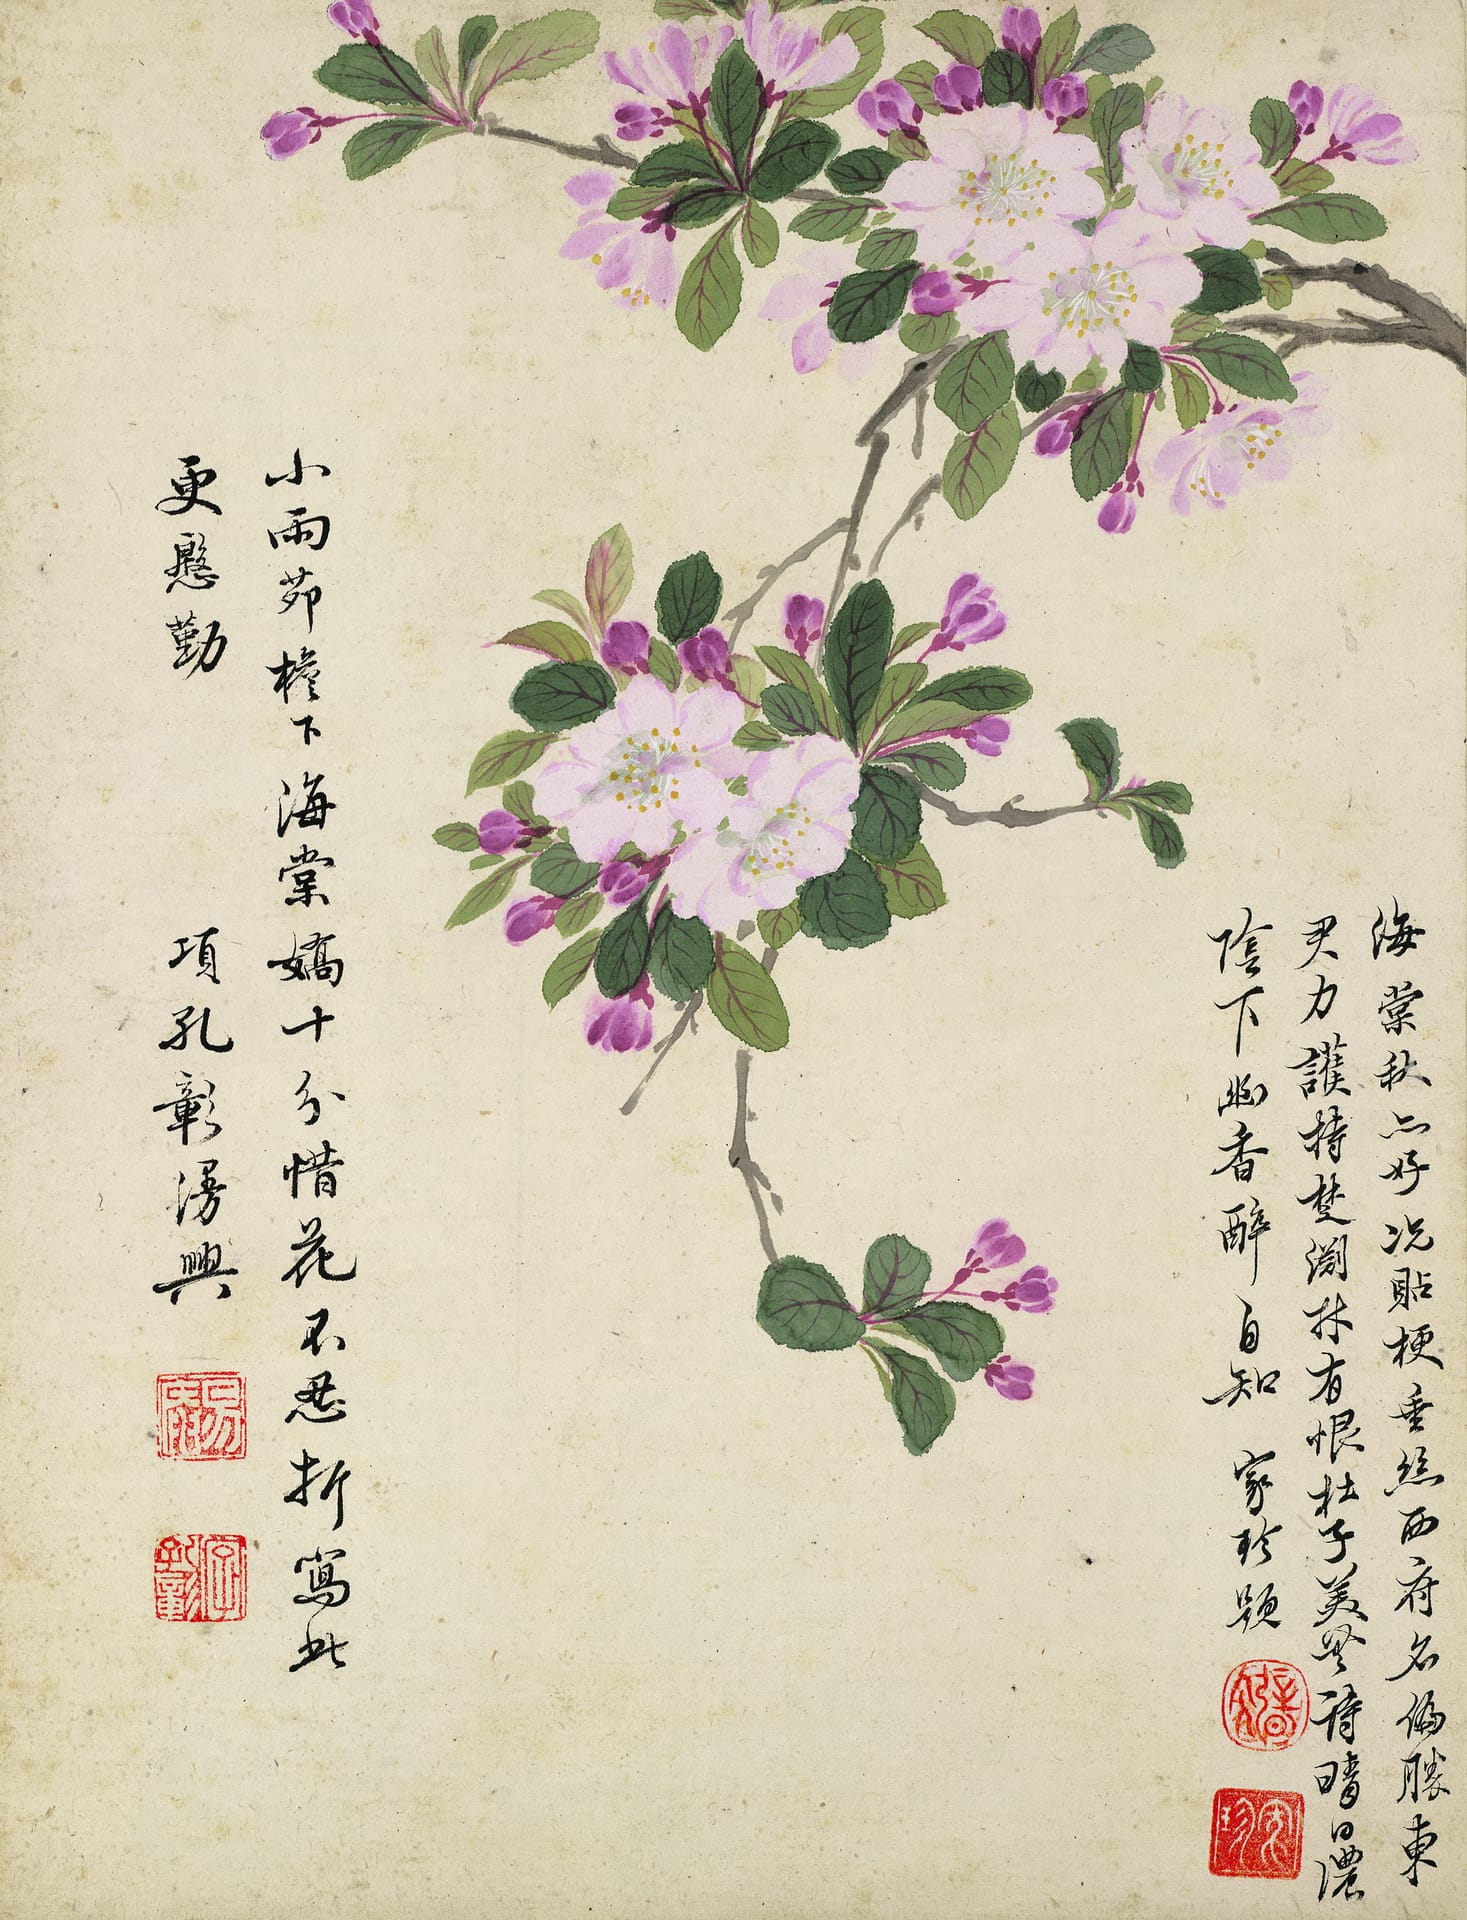 海棠秋亦好況貼梗垂絲西府名偏勝東
君力護持楚淵材有恨杜子美無詩晴日濃
陰下幽香醉自知 家珍題
家珍
小雨茆檐下海棠嬌十分惜花不忍折寫此
更慇勤 項孔彰漫興